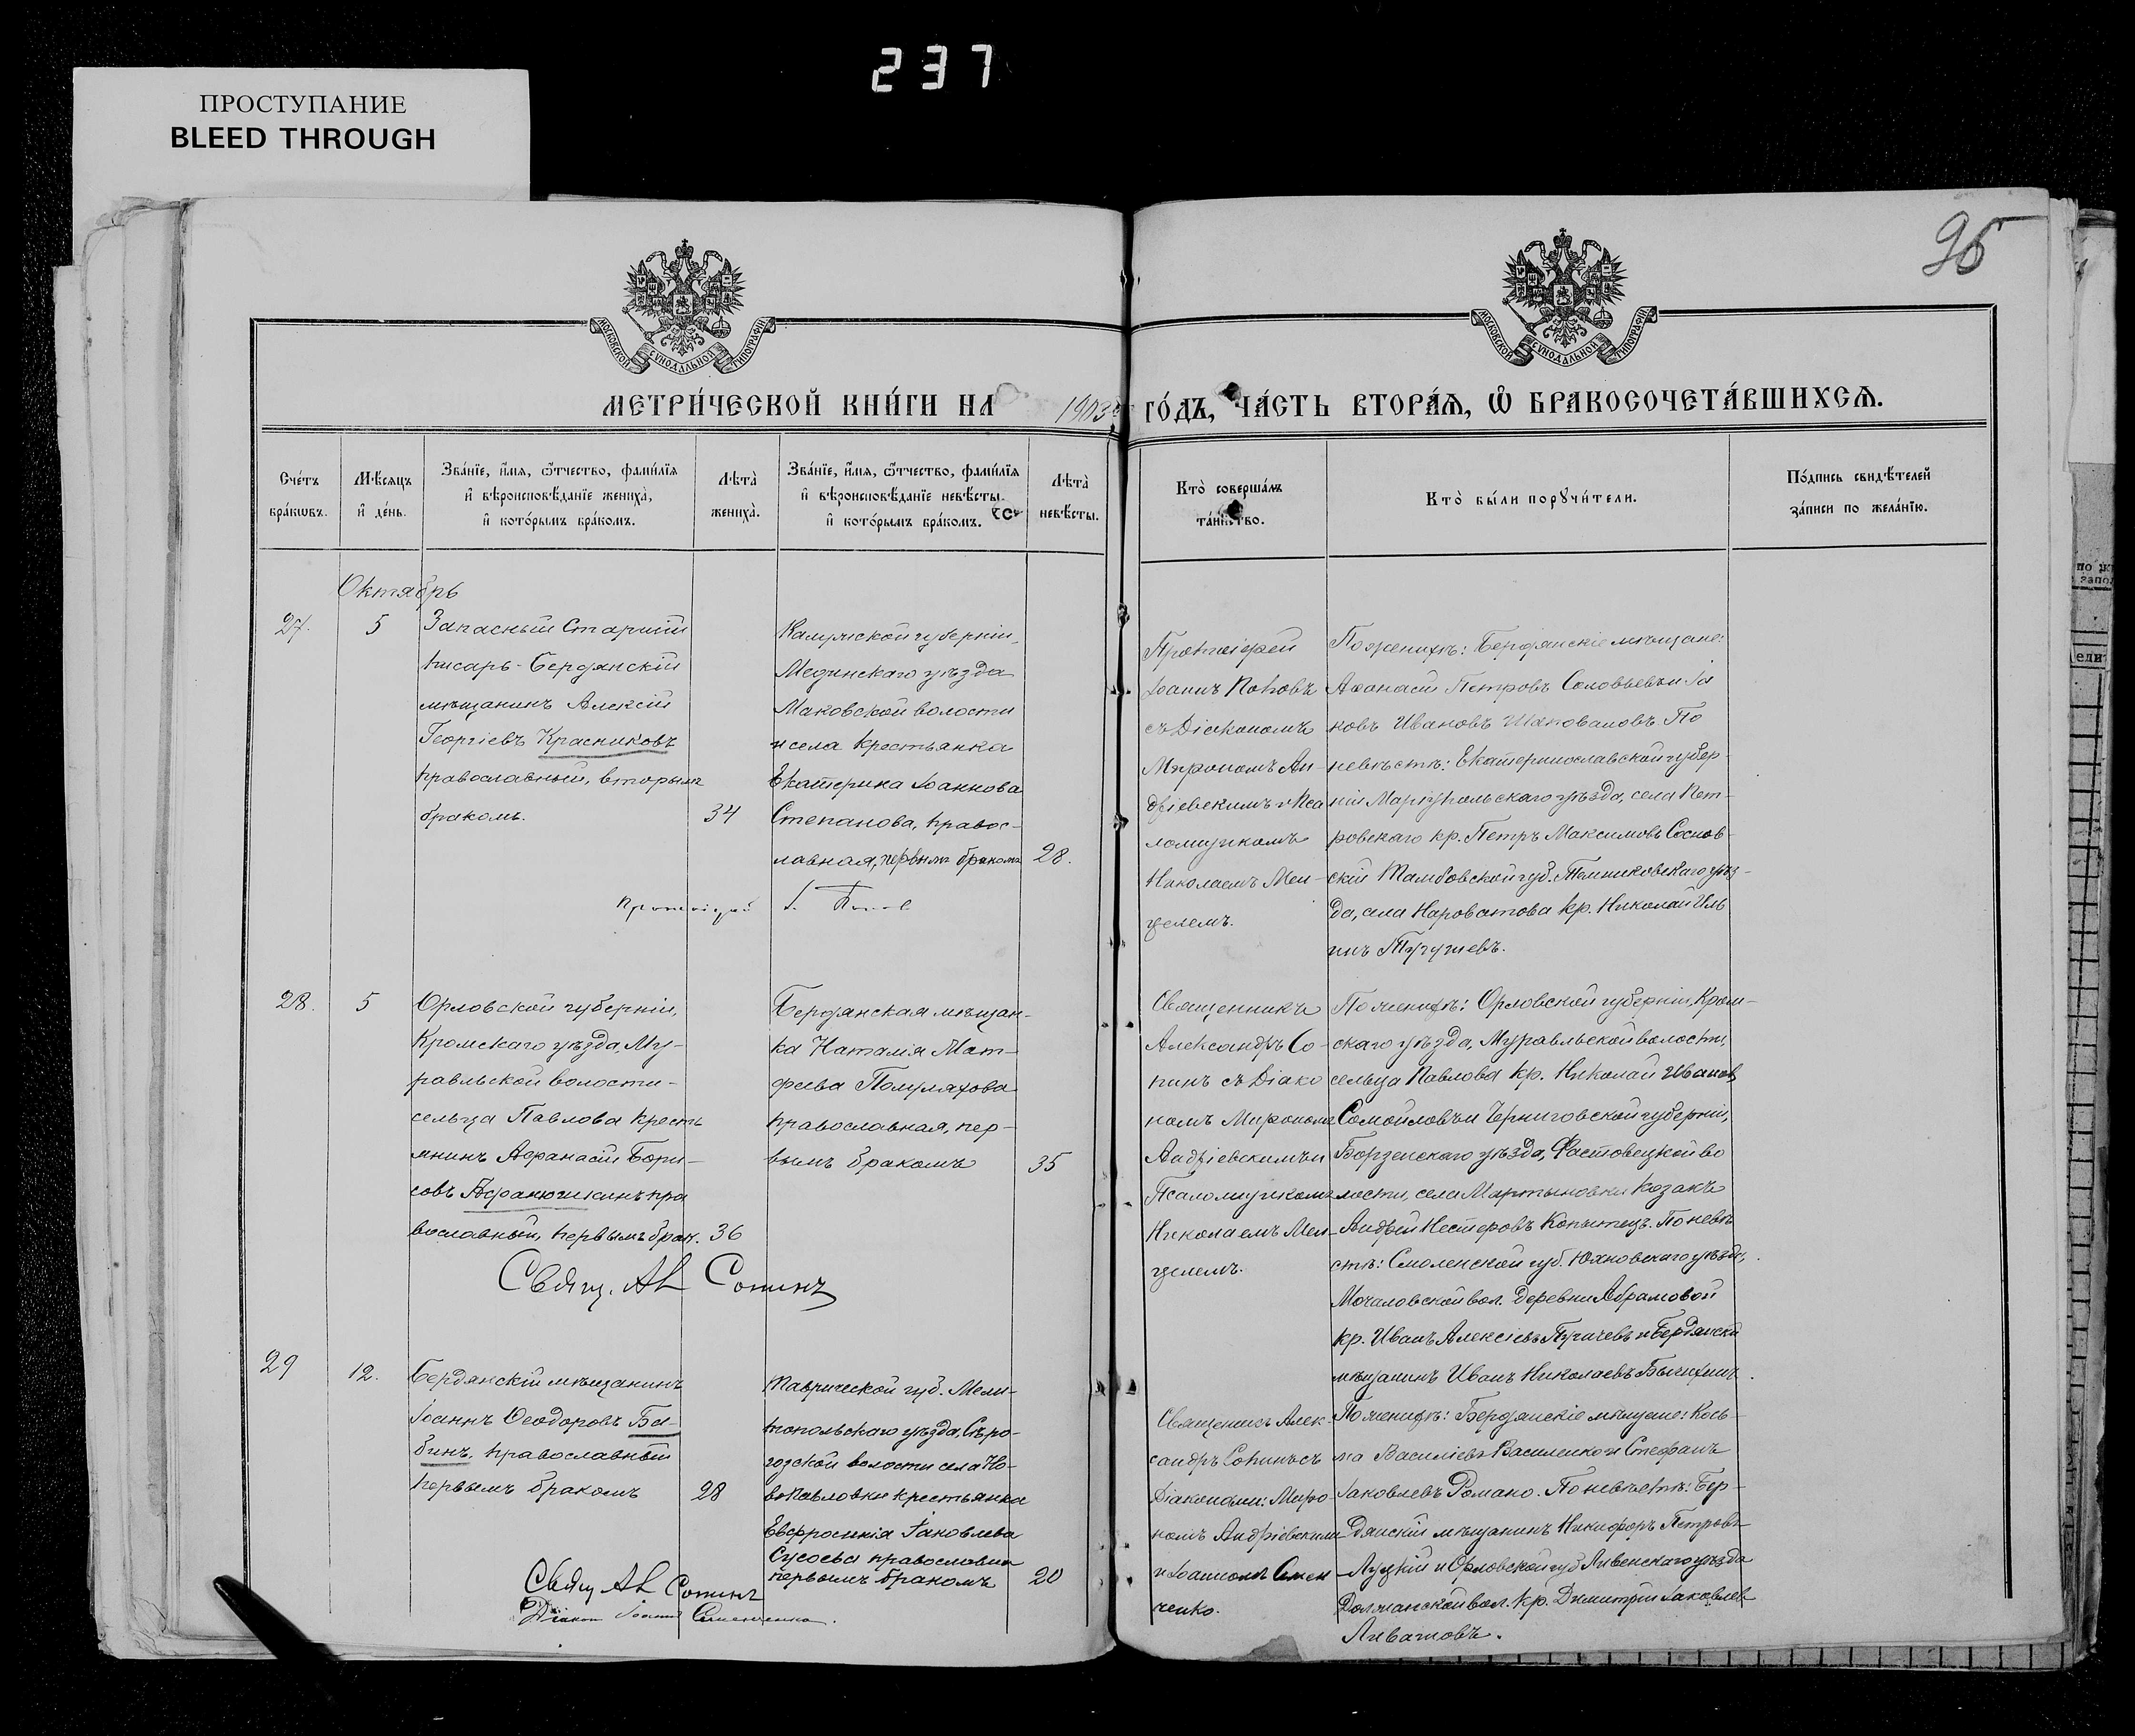 237
ПРОСТУПАНИЕ
BLEED THROUGH
95
МОСКОВСКОЙ СѴНОДАЛЬНОЙ ТИПОГРАФІИ
МОСКОВСКОЙ СѴНОДАЛЬНОЙ ТИПОГРАФІИ
МЕТРИ́ЧЕСКОЙ КНИ́ГИ НА 1903 ГО́ДЪ, ЧА́СТЬ ВТОРА́Ѧ, Ѡ БРАКОСОЧЕТА́ВШИХСѦ.
Сче́тъ бра́кѡвъ.
Мѣ́сѧцъ и де́нь.
Зва́нїе, и́мѧ, ѻ҆́тчество, фами́лїѧ
и҆ вѣроисповѣ́данїе жениха̀,
и҆ кото́рымъ бра́комъ.
Лѣта̀ жениха̀.
Зва́нїе, и́мѧ, ѻ҆́тчество, фами́лїѧ
и҆ вѣроисповѣ́данїе невѣ́сты.
и҆ кото́рымъ бра́комъ.
Лѣта̀ невѣ́сты.
Кто̀ соверша́лъ
та́инство.
Кто̀ бы́ли порꙋчи́тели.
По́дпись свидѣ́телей
за́писи по жела́нїю.
Октябрь
27. 5
Запасный Старшій
писарь-Бердянскій
мѣщанинъ Алексій
Георгіевъ Красниковъ
православный, вторымъ
бракомъ.
34
Калужской губерніи
Медынскаго уѣзда
Маковской волости
и села крестьянка
Екатерина Іоаннова
Степанова, правос-
лавная, первымъ бракомъ
28.
Протоіерей І. Попов
Протоіерей
Іоаннъ Поповъ
съ Діакономъ
Мирономъ Ан-
дріевскимъ и Пса
ломщикомъ
Николаемъ Мен-
целемъ.
По женихѣ: Бердянскіе мѣщане:
Аѳанасій Петровъ Соловьевъ и Іа
ковъ Ивановъ Шаповаловъ. По
невѣстѣ: Екатеринославской губер-
ніи Маріупольскаго уѣзда, села Пет-
ровскаго кр. Петръ Максимовъ Соснов-
скій Тамбовской губ. Темниковскаго уѣз-
да, села Нароватова кр. Николай Иль
инъ
28. 5
Орловской губерніи,
Кромскаго уѣзда, Му-
равльской волости-
сельца Павлова кресть
янинъ Афанасій Бори-
совъ Афанюшкинъ пра
вославный, первымъ брак.
36
Бердянская мѣщан-
ка Наталія Мат-
феева Полуляхова
православная, пер-
вымъ бракомъ
35
Свящ. Ал Сопинъ
Священникъ
Александръ Со-
пинъ съ Діако
номъ Мирономъ
Андріевскимъ и
Псаломщикомъ
Николаемъ Мен-
целемъ.
По женихѣ: Орловской губерніи, Кром-
скаго уѣзда, Муравльской волости,
сельца Павлова кр. Николай Ивановъ
Самойловъ и Черниговской губерніи,
Борзенскаго уѣзда, Фастовецкой во
лости, села Мартыновки козакъ
Андрей Нестеровъ Копытецъ. По невѣ
стѣ: Смоленской губ. Юхновскаго уѣзда,
Мочаловской вол. деревни Абрамовой
кр. Иванъ Алексіевъ Пугачевъ и Бердянскій
мѣщанинъ Иванъ Николаевъ Бычихинъ.
29 12.
Бердянскій мѣщанинъ
Іоаннъ Ѳеодоровъ Ба-
бинъ, православный
первымъ бракомъ
28
Таврической губ. Мели-
топольскаго уѣзда, Сѣро-
гозской волости села Но-
вопавловки крестьянка
Евфросинія Іаковлева
Сусоева православная
первымъ бракомъ
20
Свящ Ал Сопинъ
Діакон Іоанн Семенченко.
Священникъ Алек-
сандръ Сопинъ съ
Діаконами: Миро-
номъ Андріевскимъ
и Іоанномъ Семен
ченко.
По женихѣ: Бердянскіе мѣщане: Кось-
ма Василіевъ Василенко и Стефанъ
Іаковлевъ Романо. По невѣстѣ: Бер-
дянскій мѣщанинъ Никифоръ Петровъ
Луцкій и Орловской губ Ливенскаго уѣзда
Должанской вол. кр. Димитрій Іаковлев
Ливашовъ.